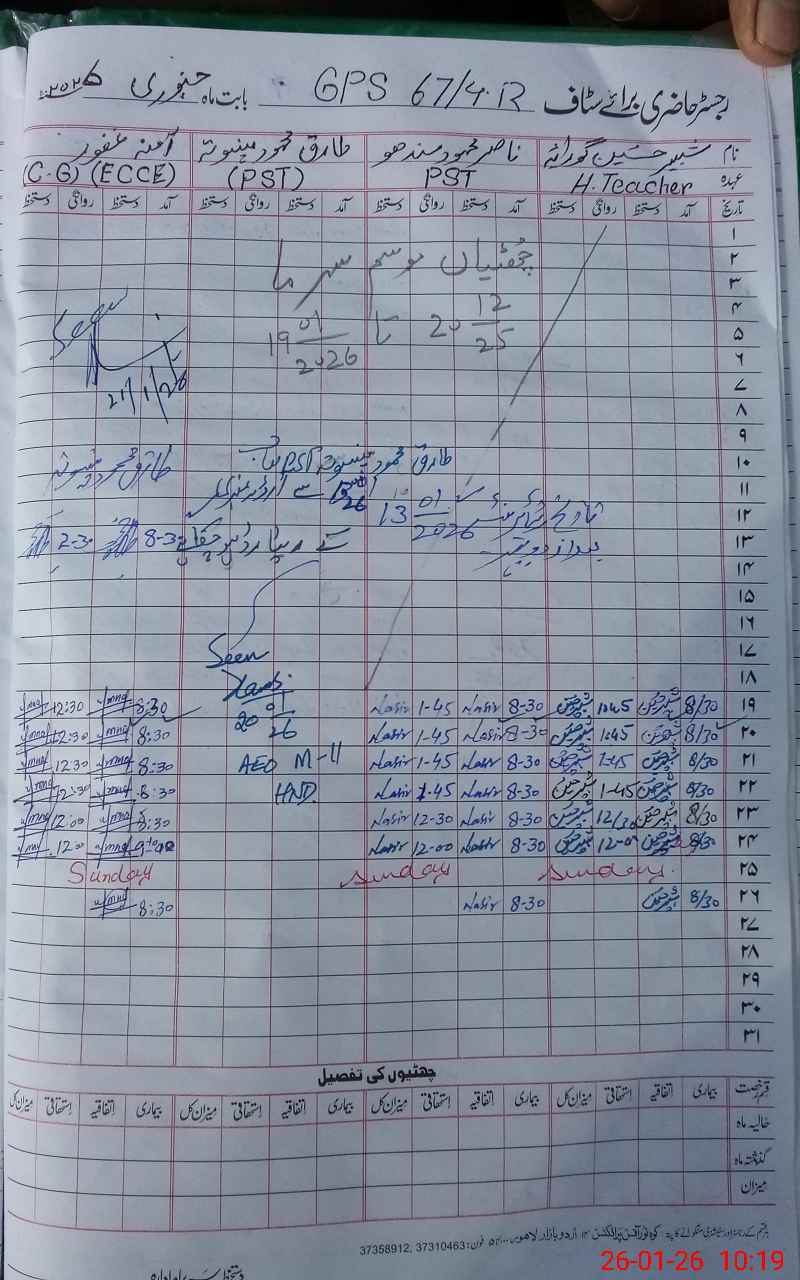 رجسٹر حاضری برائے سٹاف GPS 67/4.R بابت ماہ جنوری ۲۰۲۶
نام شبیر حسین گورایہ ناصر محمود سندھو طارق محمود آمنہ غفور
عہدہ H. Teacher PST (PST) (C.G) (ECCE)
تاریخ آمد دستخط روانگی دستخط آمد دستخط روانگی دستخط آمد دستخط روانگی دستخط آمد دستخط روانگی دستخط
۱
۲ چھٹیاں موسم سرما
۳
۴ 20 12/25 تا 19 01/2026
۵ Seen
۶
۷ 21/1/26
۸
۹
۱۰ طارق محمود PST
۱۱ سے
۱۲ 13 01/2026
۱۳ کے 8-30 2-30
۱۴
۱۵
۱۶
۱۷ Seen
۱۸
۱۹ 8/30 شبیر حسین 1-45 شبیر حسین 8-30 Nasir 1-45 Nasir 8:30 12:30
20 01/26
۲۰ 8/30 شبیر حسین 1-45 شبیر حسین 8-30 Nasir 1-45 Nasir 8:30 12:30
۲۱ 8/30 شبیر حسین 1-45 شبیر حسین 8-30 Nasir 1-45 Nasir AEO M-11 8:30 12:30
۲۲ 8/30 شبیر حسین 1-45 شبیر حسین 8-30 Nasir 1-45 Nasir HND. 8:30 12:30
۲۳ 8/30 شبیر حسین 12/30 شبیر حسین 8-30 Nasir 12-30 Nasir 8:30 12:00
۲۴ 8/30 شبیر حسین 12-00 شبیر حسین 8-30 Nasir 12-00 Nasir 12:00
۲۵ Sunday Sunday Sunday
۲۶ 8/30 شبیر حسین 8-30 Nasir 8:30
۲۷
۲۸
۲۹
۳۰
۳۱
چھٹیوں کی تفصیل
قسم رخصت بیماری اتفاقیہ استحقاقی میزان کل بیماری اتفاقیہ استحقاقی میزان کل بیماری اتفاقیہ استحقاقی میزان کل بیماری اتفاقیہ استحقاقی میزان کل
حالیہ ماہ
گذشتہ ماہ
میزان
اردو بازار لاہور فون: 37358912, 37310463
26-01-26 10:19